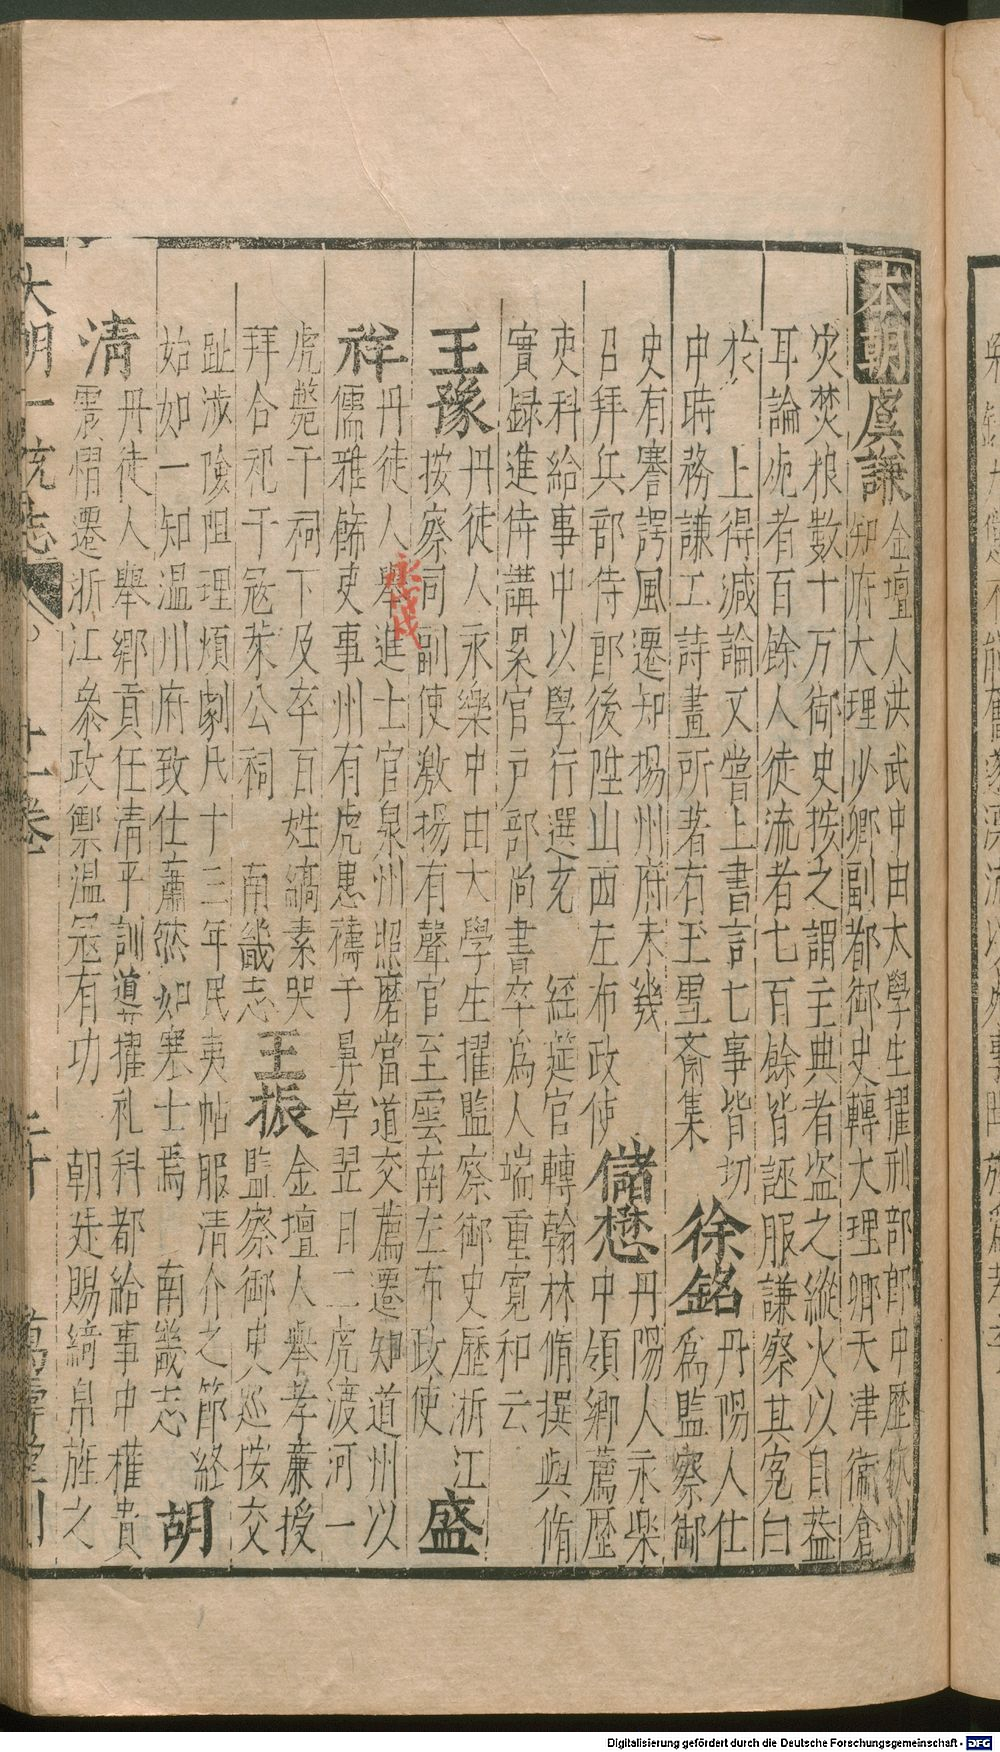 本朝 虞謙 金壇人洪武中由太學生擢刑部郎中歷杭州
知府大理少卿副都御史轉大理卿天津衛倉
災焚粮數十万御史按之謂主典者盜之縱火以自葢
耳論死者百餘人徒流者七百餘皆誣服謙察其寃白
於 上得减論又嘗上書言七事皆切
中時務謙工詩畫所著有玉雪斋集
徐銘 丹陽人仕
爲監察御
史有謇諤風遷知揚州府未幾
召拜兵部侍郎後陞山西左布政使
儲懋 丹陽人永樂
中領鄉薦歷
吏科給事中以學行選充 經筵官轉翰林脩撰與脩
實録進侍講累官戸部尚書卒為人端重寬和云
王豫 丹徒人永樂中由大學生擢監察御史歷浙江
按察司副使激揚有聲官至雲南左布政使
盛
祥 丹徒人舉進士官泉州照磨當道交薦遷知道州以
儒雅餙吏事州有虎患禱于昇亭翌日二虎渡河一
永戊戌
虎斃于祠下及卒百姓縞素哭
拜合祀于冦萊公祠 南畿志
王振 金壇人舉孝亷授
監察御史廵按交
趾涉險阻理煩劇凡十三年民夷帖服清介之節終
始如一知温州府致仕蕭然如寒士焉 南畿志
胡
清 丹徒人舉鄉貢任清平訓導擢礼科都給事中權貴
震慴遷浙江叅政禦温冦有功 朝廷賜綺帛旌之
大明一統志 十一卷 二十
Digitalisierung gefördert durch die Deutsche Forschungsgemeinschaft - DFG